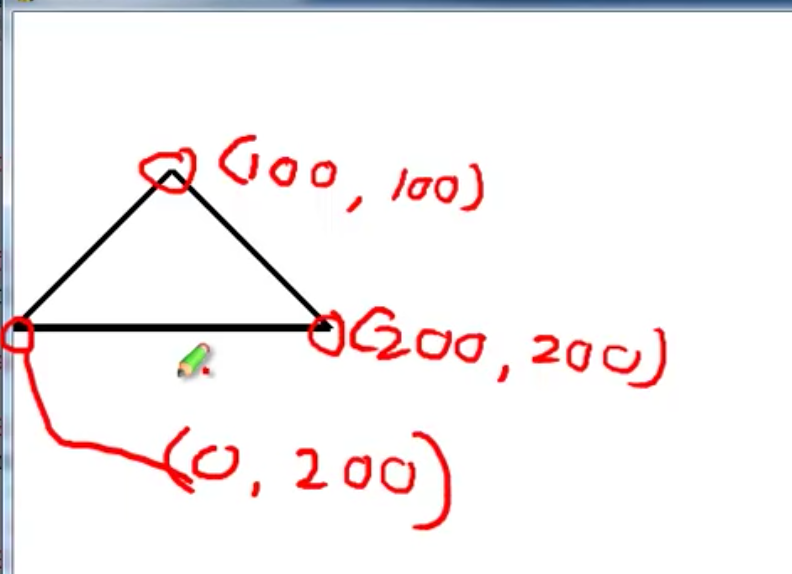 (100, 100)
(200, 200)
(0, 200)